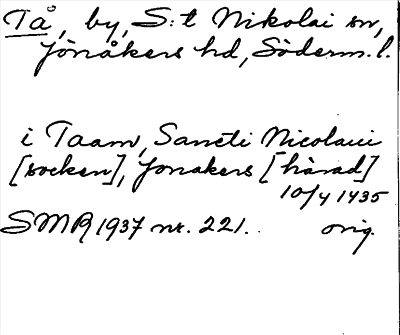 Tå, by, S:t Nikolai sn,
Jönåkers hd, Söderm.l.
i Taam, Sancti Nicolaui
[socken], Jonakers [härad]
10/4 1435
SMR 1937 nr. 221. orig.